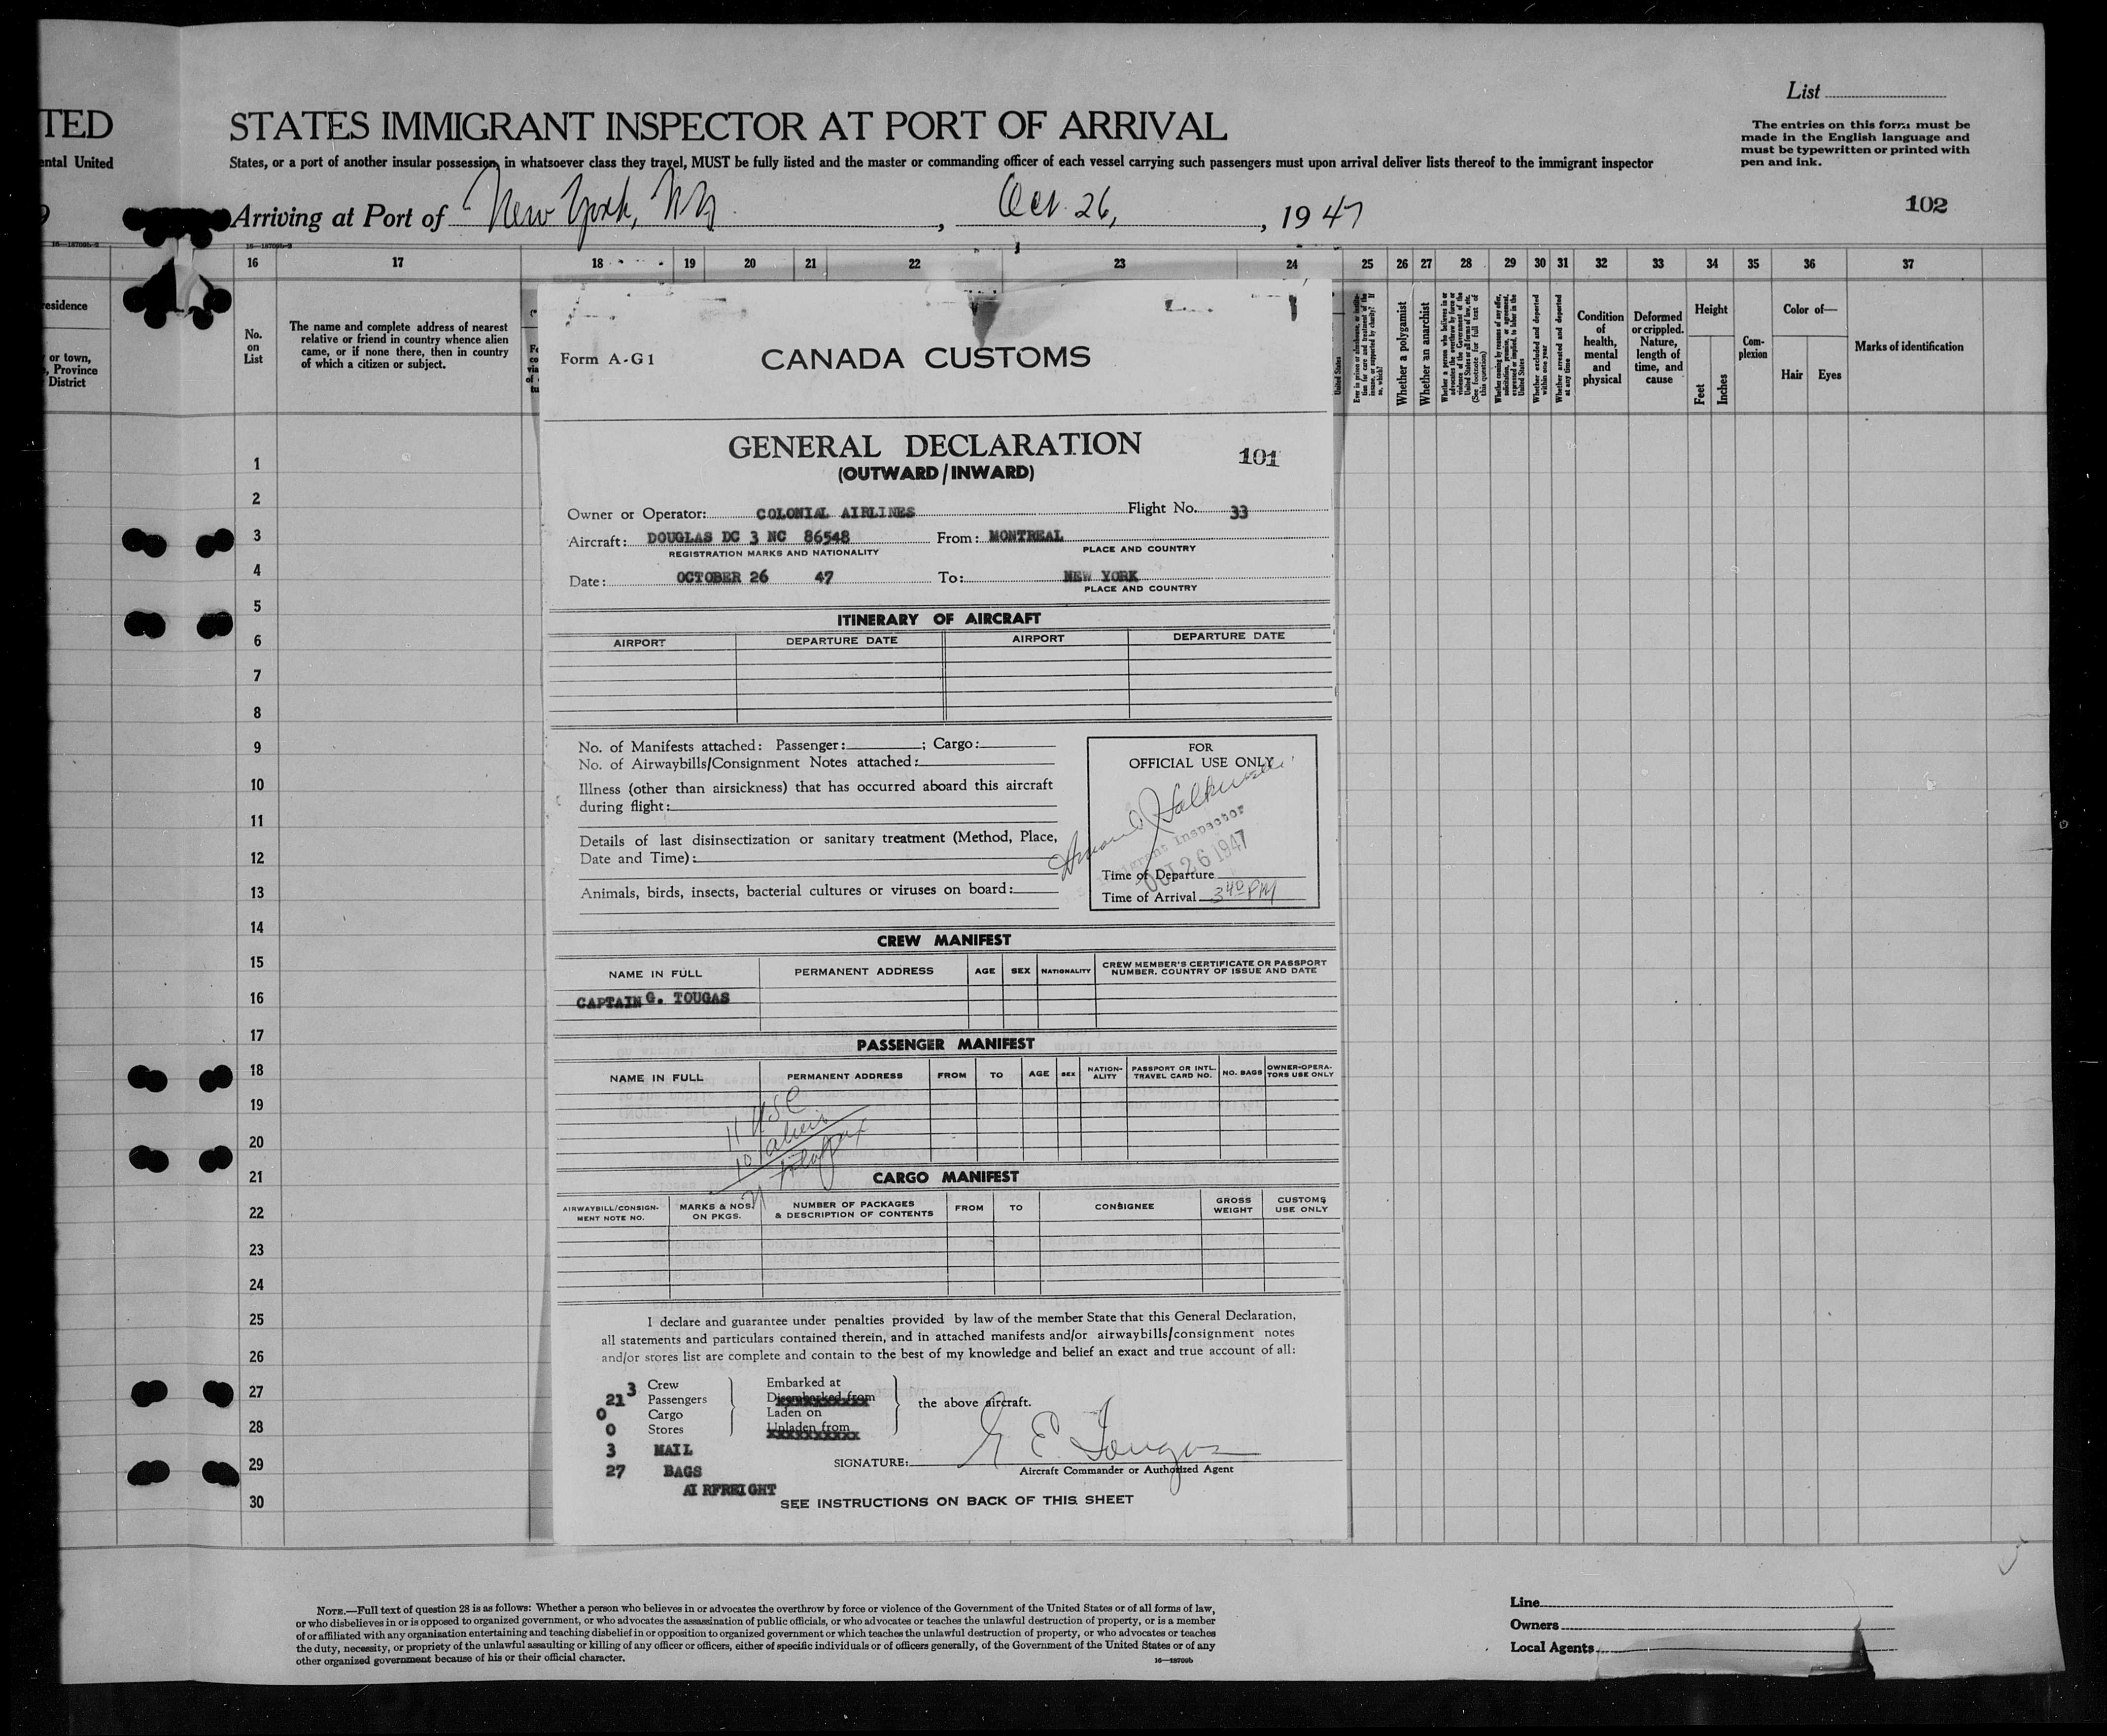 List
TED
STATES IMMIGRANT INSPECTOR AT PORT OF ARRIVAL
The entries on this form must be
made in the English language and
must be typewritten or printed with
pen and ink.
ental United
States, or a port of another insular possession, in whatsoever class they travel, MUST be fully listed and the master or commanding officer of each vessel carrying such passengers must upon arrival deliver lists thereof to the immigrant inspector
Arriving at Port of New York, NY, Oct. 26, 1947
102
16 17 18 19 20 21 22 23 24 25 26 27 28 29 30 31 32 33 34 35 36 37
esidence
or town,
, Province
District
No.
on
List
The name and complete address of nearest
relative or friend in country whence alien
came, or if none there, then in country
of which a citizen or subject.
United States
Whether a polygamist
Whether an anarchist
Whether excluded and deported
within one year
Whether arrested and deported
at any time
Condition
of
health,
mental
and
physical
Deformed
or crippled.
Nature,
length of
time, and
cause
Height
Feet
Inches
Com-
plexion
Color of—
Hair Eyes
Marks of identification
1
2
3
4
5
6
7
8
9
10
11
12
13
14
15
16
17
18
19
20
21
22
23
24
25
26
27
28
29
30
Form A-G1
CANADA CUSTOMS
GENERAL DECLARATION
(OUTWARD/INWARD)
101
Owner or Operator: COLONIAL AIRLINES Flight No. 33
Aircraft: DOUGLAS DC 3 NC 86548 From: MONTREAL
REGISTRATION MARKS AND NATIONALITY PLACE AND COUNTRY
Date: OCTOBER 26 47 To: NEW YORK
PLACE AND COUNTRY
ITINERARY OF AIRCRAFT
AIRPORT DEPARTURE DATE AIRPORT DEPARTURE DATE
No. of Manifests attached: Passenger: ; Cargo:
No. of Airwaybills/Consignment Notes attached:
Illness (other than airsickness) that has occurred aboard this aircraft
during flight:
Details of last disinsectization or sanitary treatment (Method, Place,
Date and Time):
Animals, birds, insects, bacterial cultures or viruses on board:
FOR
OFFICIAL USE ONLY
Immigrant Inspector
OCT 26 1947
Time of Departure
Time of Arrival 3 40 PM
CREW MANIFEST
NAME IN FULL PERMANENT ADDRESS AGE SEX NATIONALITY CREW MEMBER'S CERTIFICATE OR PASSPORT
NUMBER, COUNTRY OF ISSUE AND DATE
CAPTAIN G. TOUGAS
PASSENGER MANIFEST
NAME IN FULL PERMANENT ADDRESS FROM TO AGE SEX NATION-
ALITY PASSPORT OR INTL.
TRAVEL CARD NO. NO. BAGS OWNER-OPERA-
TORS USE ONLY
11 USC
10 aliens
21
CARGO MANIFEST
AIRWAYBILL/CONSIGN-
MENT NOTE NO. MARKS & NOS.
ON PKGS. NUMBER OF PACKAGES
& DESCRIPTION OF CONTENTS FROM TO CONSIGNEE GROSS
WEIGHT CUSTOMS
USE ONLY
I declare and guarantee under penalties provided by law of the member State that this General Declaration,
all statements and particulars contained therein, and in attached manifests and/or airwaybills/consignment notes
and/or stores list are complete and contain to the best of my knowledge and belief an exact and true account of all:
3 Crew Embarked at
21 Passengers Disembarked from the above aircraft.
0 Cargo Laden on
0 Stores Unladen from
3 MAIL
27 BAGS
AIRFREIGHT
SIGNATURE: G E Tougas
Aircraft Commander or Authorized Agent
SEE INSTRUCTIONS ON BACK OF THIS SHEET
NOTE.—Full text of question 28 is as follows: Whether a person who believes in or advocates the overthrow by force or violence of the Government of the United States or of all forms of law,
or who disbelieves in or is opposed to organized government, or who advocates the assassination of public officials, or who advocates or teaches the unlawful destruction of property, or is a member
of or affiliated with any organization entertaining and teaching disbelief in or opposition to organized government or which teaches the unlawful destruction of property, or who advocates or teaches
the duty, necessity, or propriety of the unlawful assaulting or killing of any officer or officers, either of specific individuals or of officers generally, of the Government of the United States or of any
other organized government because of his or their official character.
16—18709b
Line
Owners
Local Agents